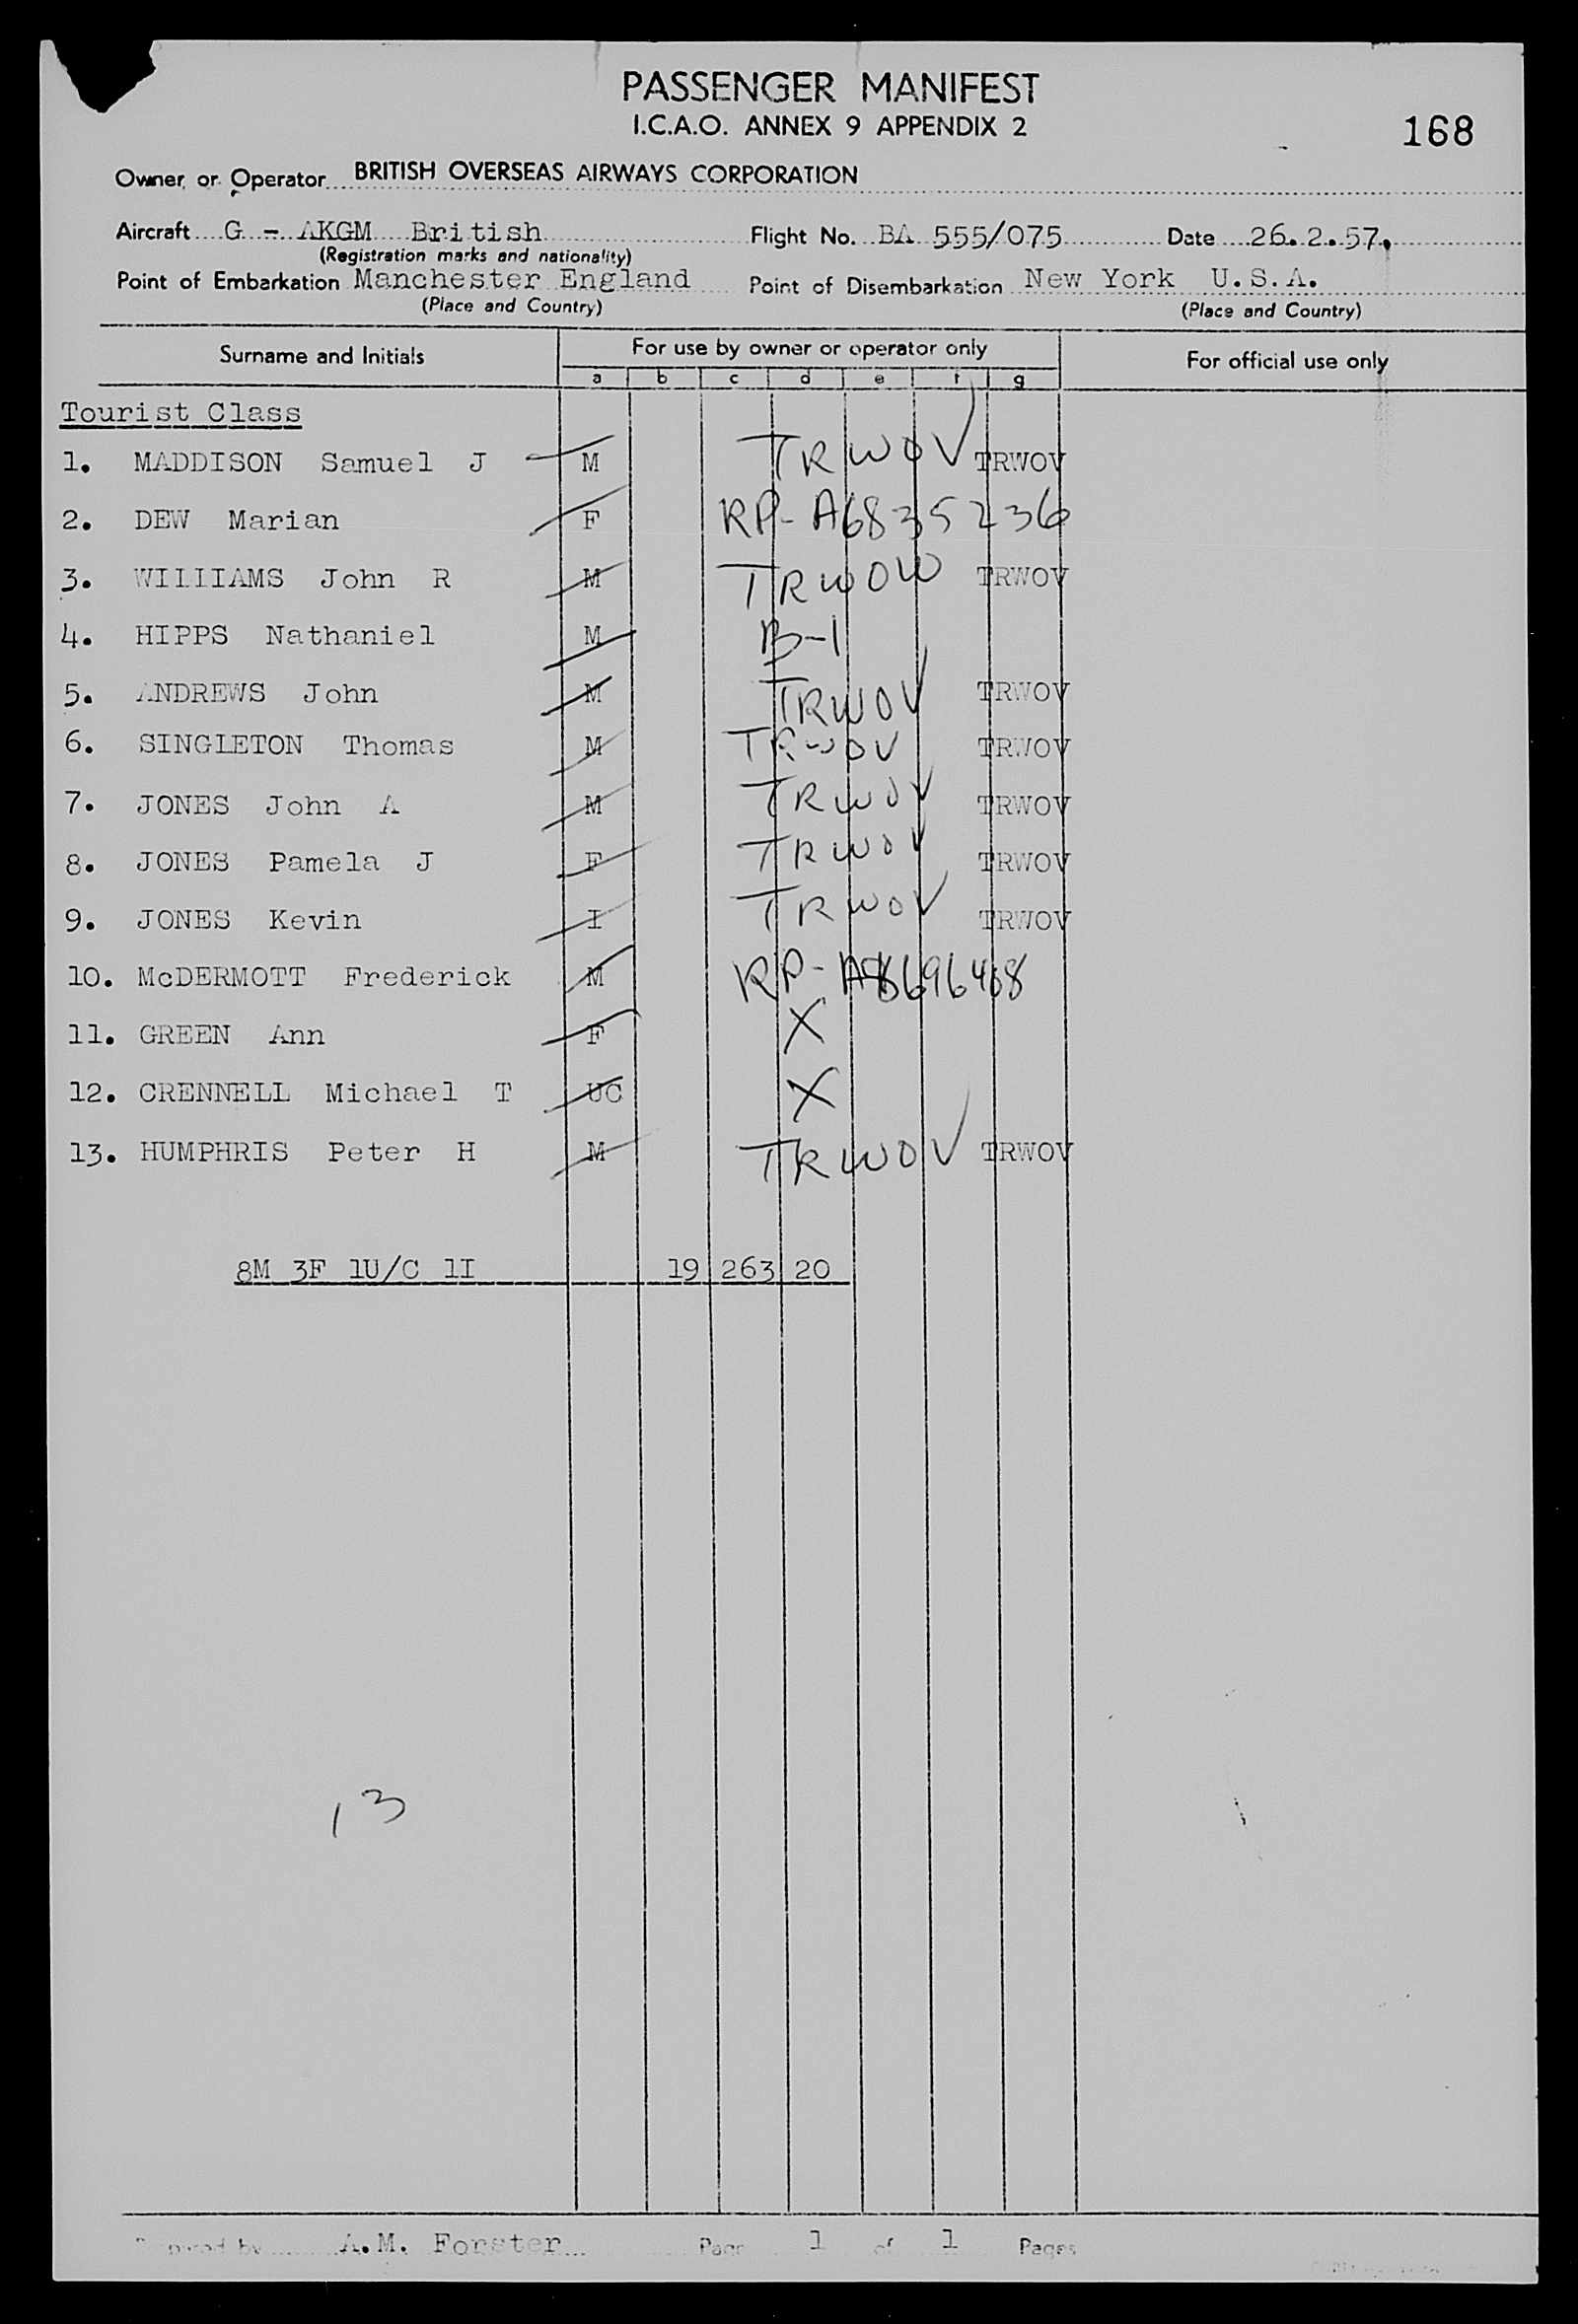 PASSENGER MANIFEST
I.C.A.O. ANNEX 9 APPENDIX 2
168
Owner or Operator BRITISH OVERSEAS AIRWAYS CORPORATION
Aircraft G - AKGM British Flight No. BA 555/075 Date 26.2.57.
(Registration marks and nationality)
Point of Embarkation Manchester England Point of Disembarkation New York U.S.A.
(Place and Country) (Place and Country)
Surname and Initials For use by owner or operator only For official use only
a b c d e f g
Tourist Class
1. MADDISON Samuel J M TRWOV TRWOV
2. DEW Marian F RP- A6835236
3. WILLIAMS John R M TRWOW TRWOV
4. HIPPS Nathaniel M B-1
5. ANDREWS John M TRWOV TRWOV
6. SINGLETON Thomas M TRWOV TRWOV
7. JONES John A M TRWOV TRWOV
8. JONES Pamela J F TRWOV TRWOV
9. JONES Kevin I TRWOV TRWOV
10. McDERMOTT Frederick M RP-
11. GREEN Ann F X
12. CRENNELL Michael T UC X
13. HUMPHRIS Peter H M TRWOV TRWOV
8M 3F 1U/C 1I 19 263 20
13
A.M. Forster Page 1 of 1 Pages